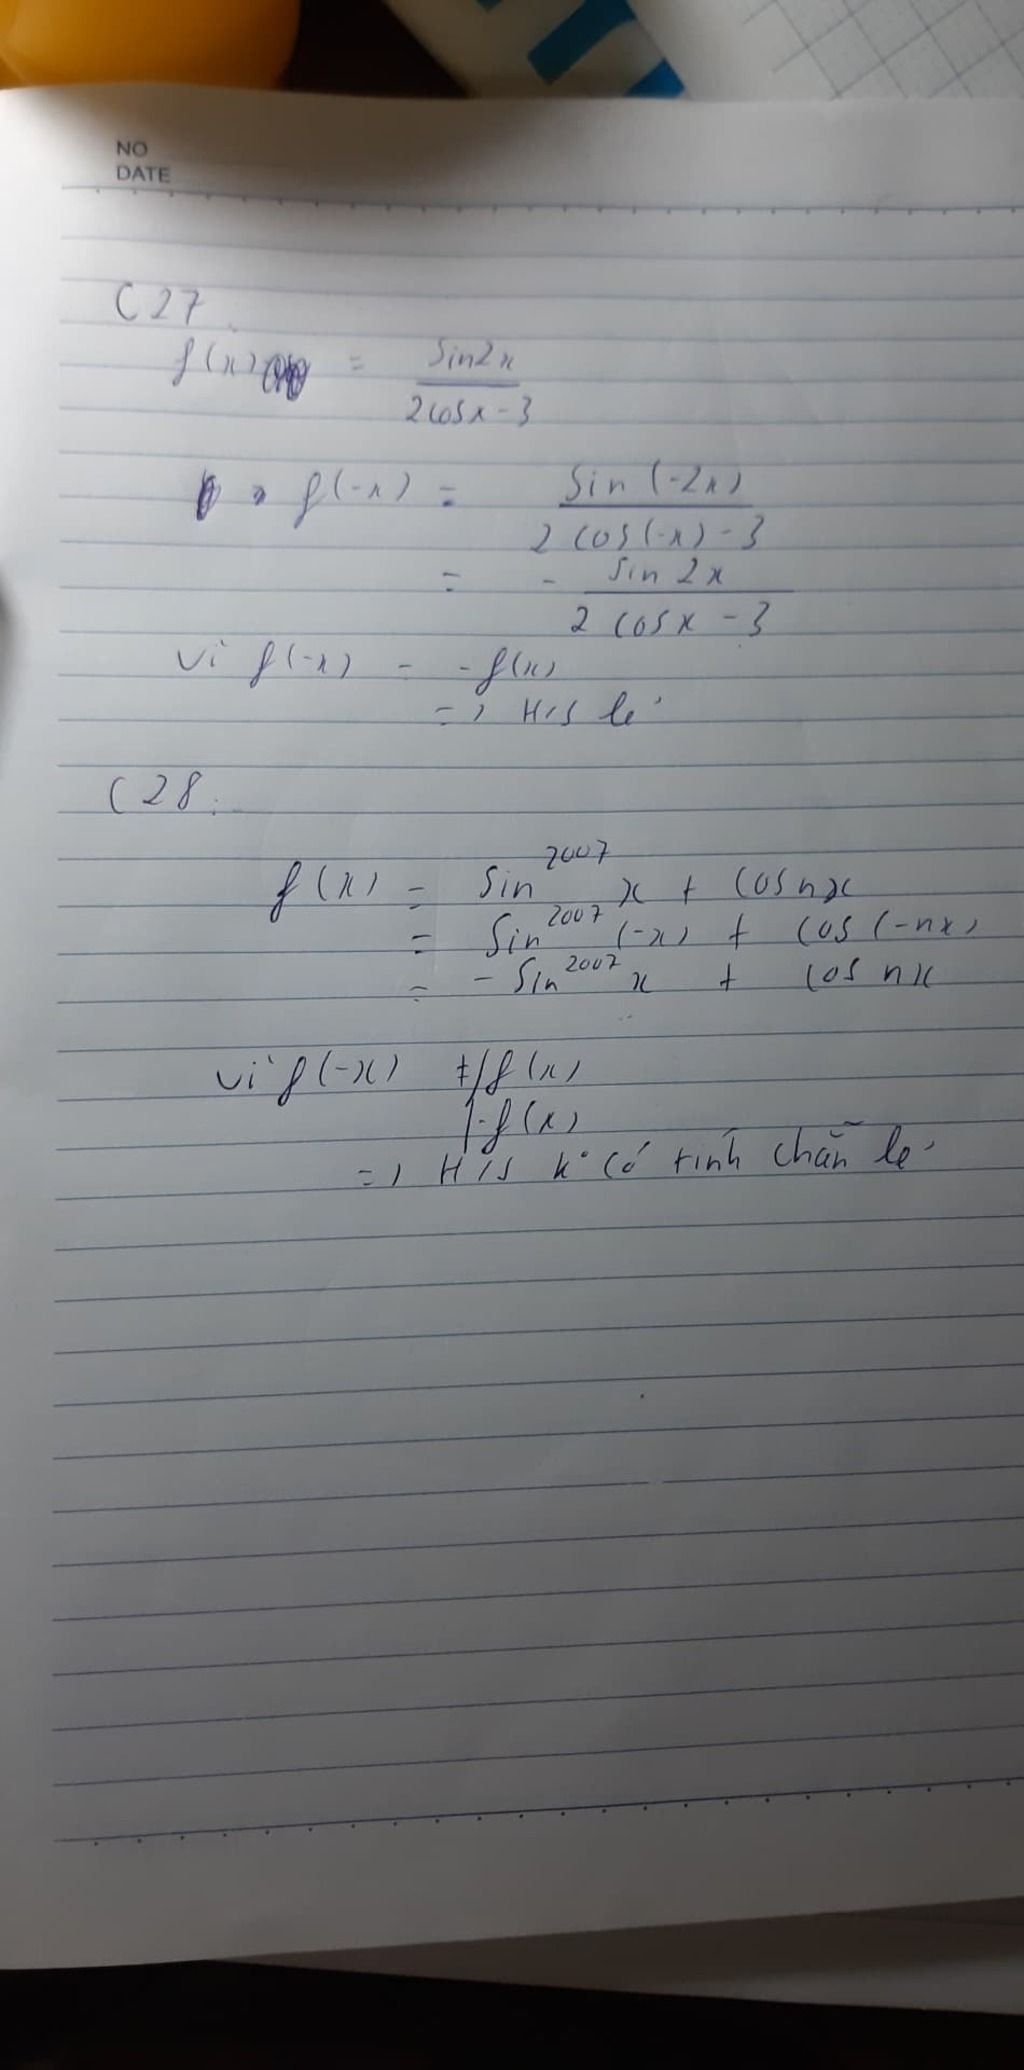 NO
DATE
C27.
f(x) = sin2x / 2cosx - 3
f(-x) = sin(-2x) / 2cos(-x) - 3
= - sin 2x / 2 cosx - 3
vì f(-x) = -f(x)
=> H/s lẻ
C28.
f(x) = sin^2007 x + cosnx
= sin^2007 (-x) + cos(-nx)
= -sin^2007 x + cos nx
vì f(-x) ≠ f(x)
-f(x)
=> H/s k° có tính chẵn lẻ